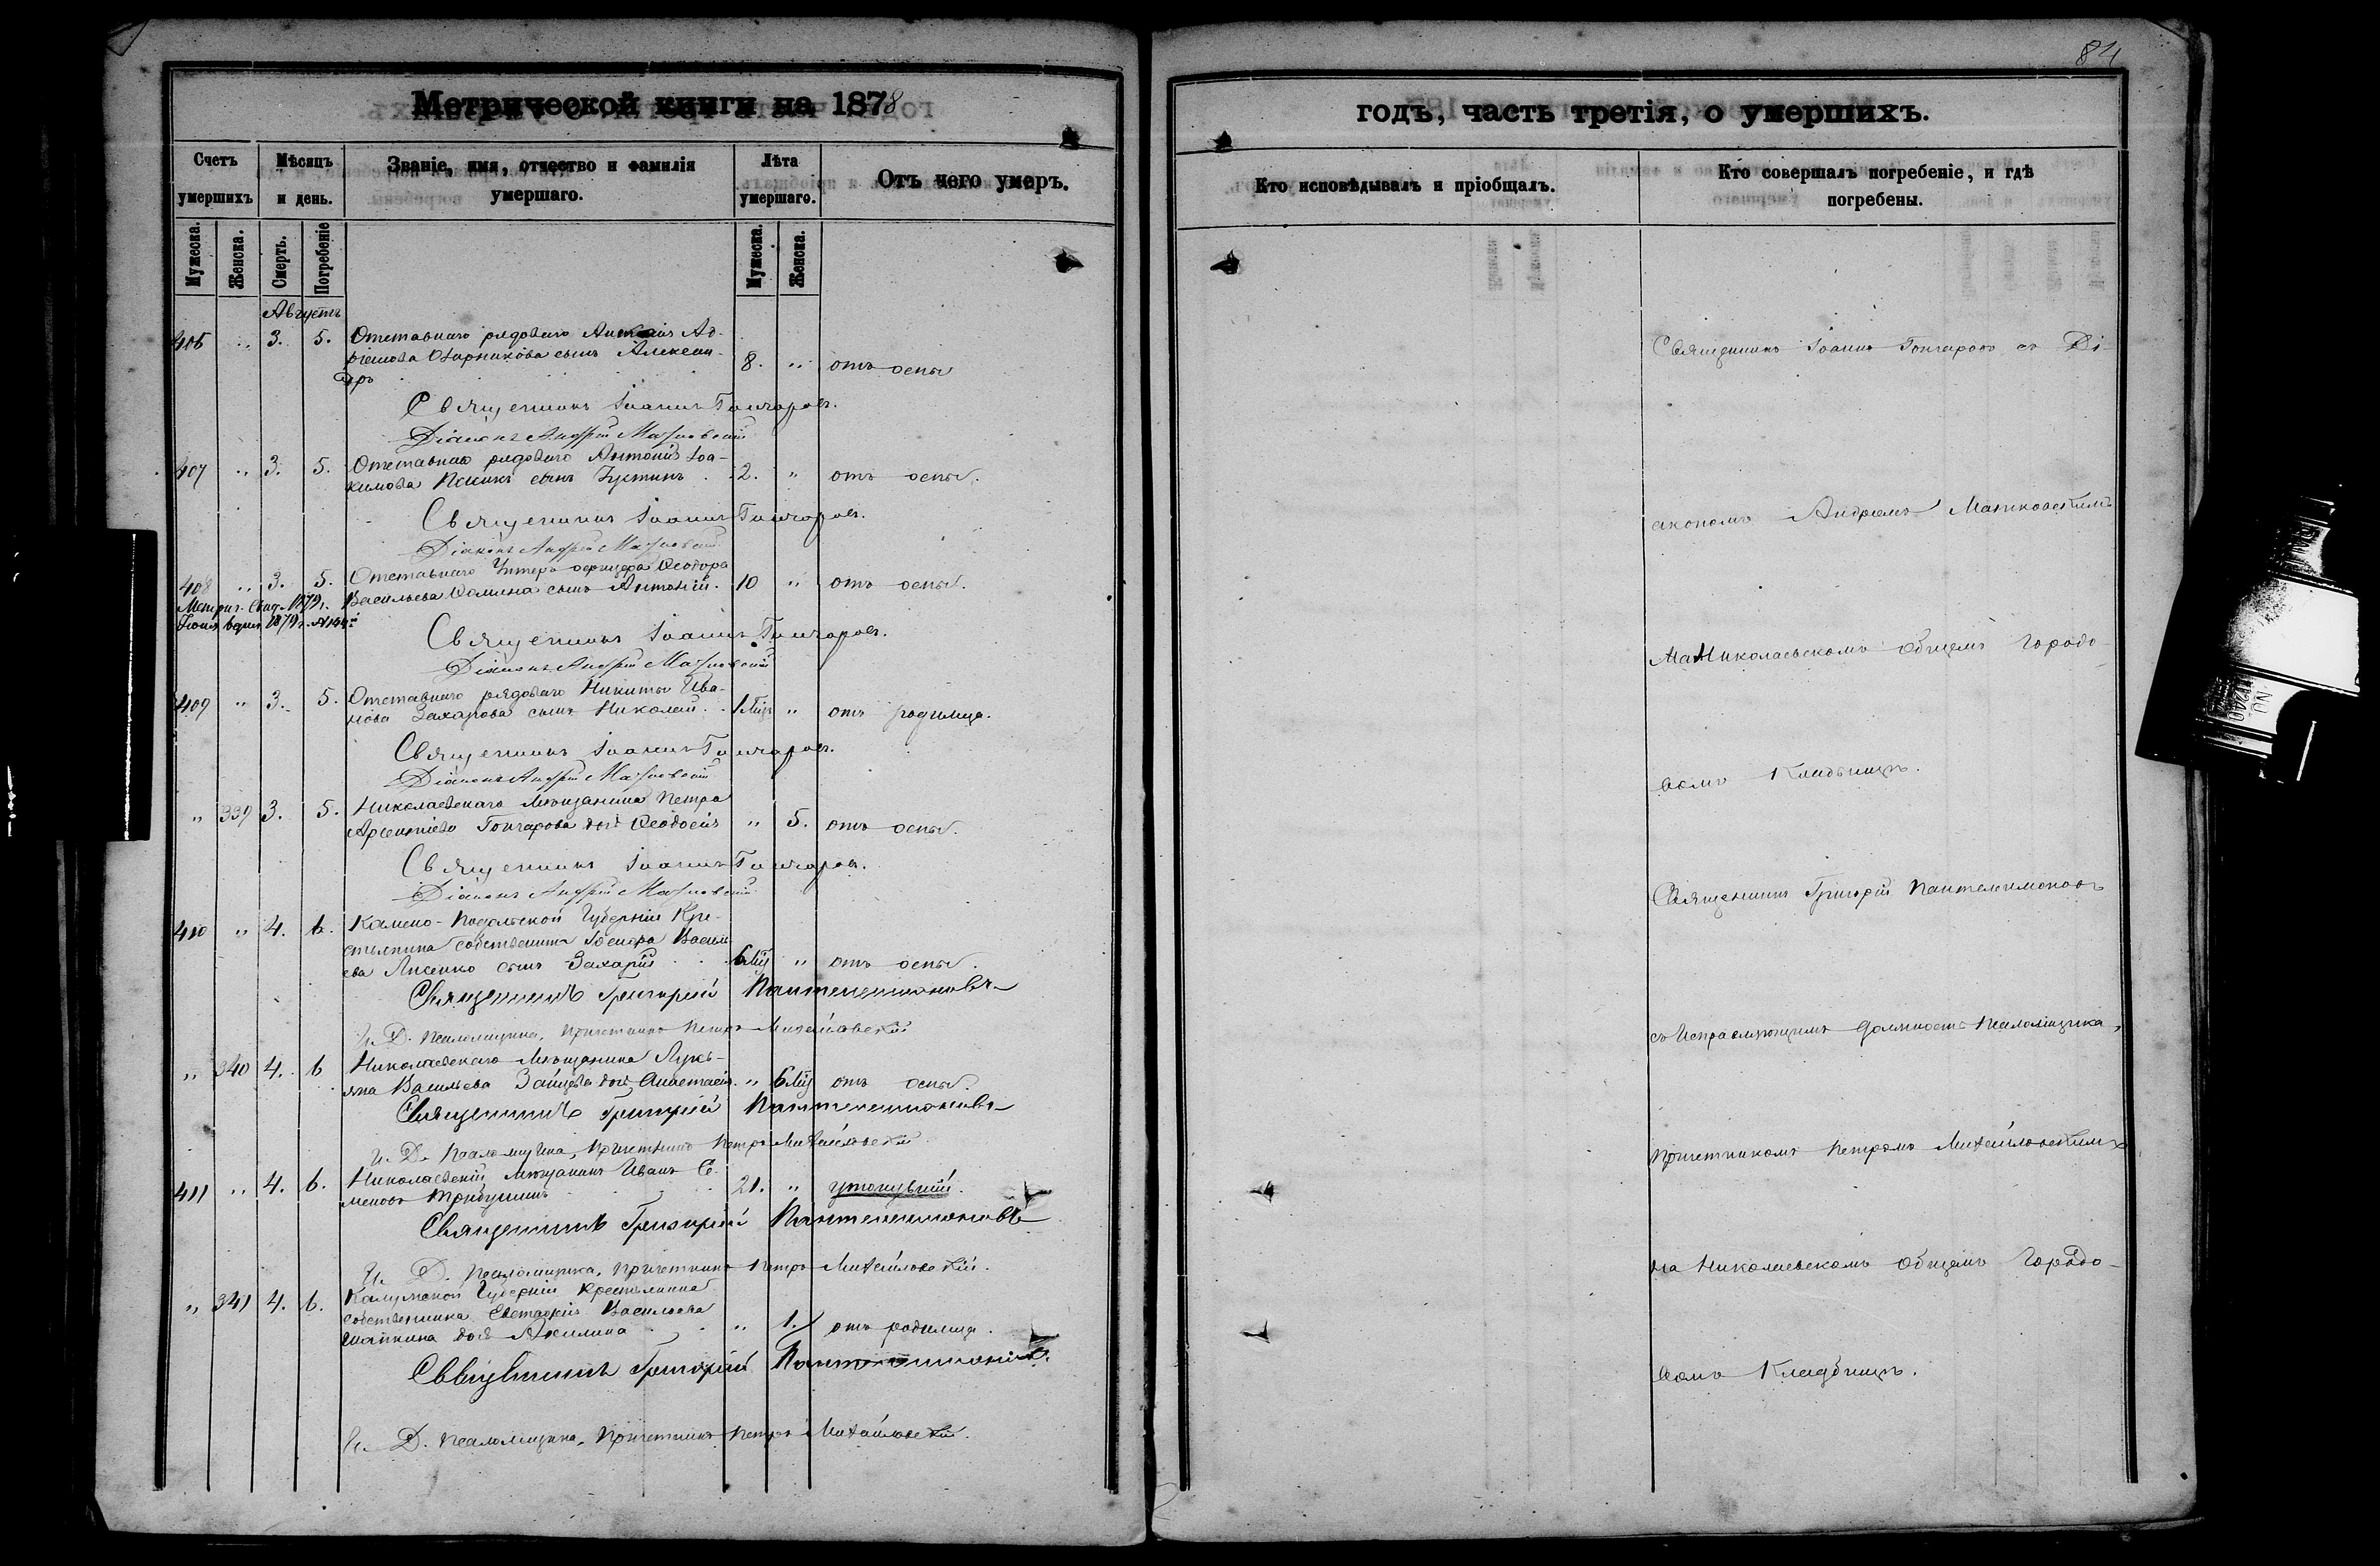 84
Метрической книги на 1878
годъ, часть третія, о умершихъ.
Счетъ умершихъ
Мѣсяцъ и день.
Званіе, имя, отчество и фамилія умершаго.
Лѣта умершаго.
Отъ чего умеръ.
Кто исповѣдывалъ и пріобщалъ.
Кто совершалъ погребеніе, и гдѣ погребены.
Мужеска.
Женска.
Смерть.
Погребеніе
Мужеска.
Женска.
Августъ
406 „ 3. 5. Отставнаго рядоваго Ад-
сынъ Алексан-
дръ 8. „ отъ оспы
Священникъ Іоаннъ Гончаровъ.
Діаконъ Андрей Матковскій
407 „ 3. 5. Отставнаго рядоваго Антонія Іоа-
кимова сынъ Іустинъ 2. „ отъ оспы.
Священникъ Іоаннъ Гончаровъ.
Діаконъ Андрей Матковскій
408 „ 3. 5. Отставнаго Унтеръ офицера Ѳеодора
Васильева Ѳомина сынъ Антоній. 10 „ отъ оспы.
Метрич. Свид. 1879 г.
Іюня 1879 г.
Священникъ Іоаннъ Гончаровъ.
Діаконъ Андрей Матковскій
409 „ 3. 5. Отставнаго рядоваго Никиты Ива-
нова Захарова сынъ Николай. „ отъ родимца.
Священникъ Іоаннъ Гончаровъ.
Діаконъ Андрей Матковскій
„ 339 3. 5. Николаевскаго мѣщанина Петра
Арсентіева Гончарова дочь Ѳеодосія „ 5. отъ оспы.
Священникъ Іоаннъ Гончаровъ.
Діаконъ Андрей Матковскій
410 „ 4. 6. Камено-Подольской Губерніи Кре-
стьянина собственника Василь
ева Лисенко сынъ Захарій „ отъ оспы.
Священникъ Григорій Пантелеимоновъ
И. Д. Псаломщика, Причетникъ Петръ Михайловскій
„ 340 4. 6 Николаевскаго мѣщанина Лукь-
яна Васильева Зайцева дочь Анастасія. „ отъ оспы.
Священникъ Григорій Пантелеимоновъ
И. Д. Псаломщика, Причетникъ Петръ Михайловскій
411 „ 4. 6. Николаевскій мѣщанинъ Иванъ Се-
меновъ 21. „ утонувшій.
Священникъ Григорій Пантелеимоновъ
И. Д. Псаломщика, Причетникъ Петръ Михайловскій.
„ 341 4. 6. Калужской Губерніи крестьянина
собственника Евстафія Васильева
дочь Акилина „ 1. отъ родимца.
Священникъ Григорій Пантелеимоновъ.
И. Д. Псаломщика, Причетникъ Петръ Михайловскій.
Священникъ Іоаннъ Гончаровъ съ Ді-
акономъ Андреемъ Матковскимъ
на Николаевскомъ общемъ городо-
вомъ Кладбищѣ.
Священникъ Григорій Пантелеимоновъ
съ Исправляющимъ должность Псаломщика,
Причетникомъ Петромъ Михайловскимъ
на Николаевскомъ общемъ Городо-
вомъ Кладбищѣ.